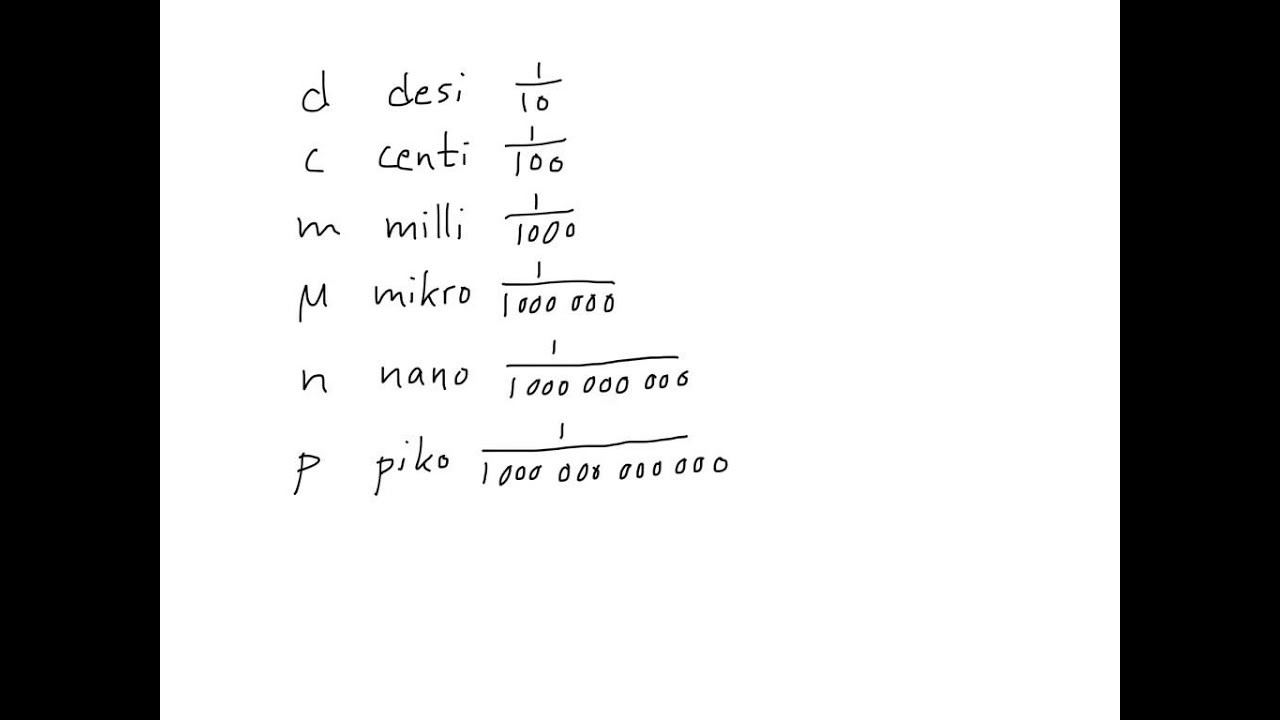 d desi 1/10
c centi 1/100
m milli 1/1000
μ mikro 1/1000 000
n nano 1/1 000 000 000
p piko 1/1 000 000 000 000